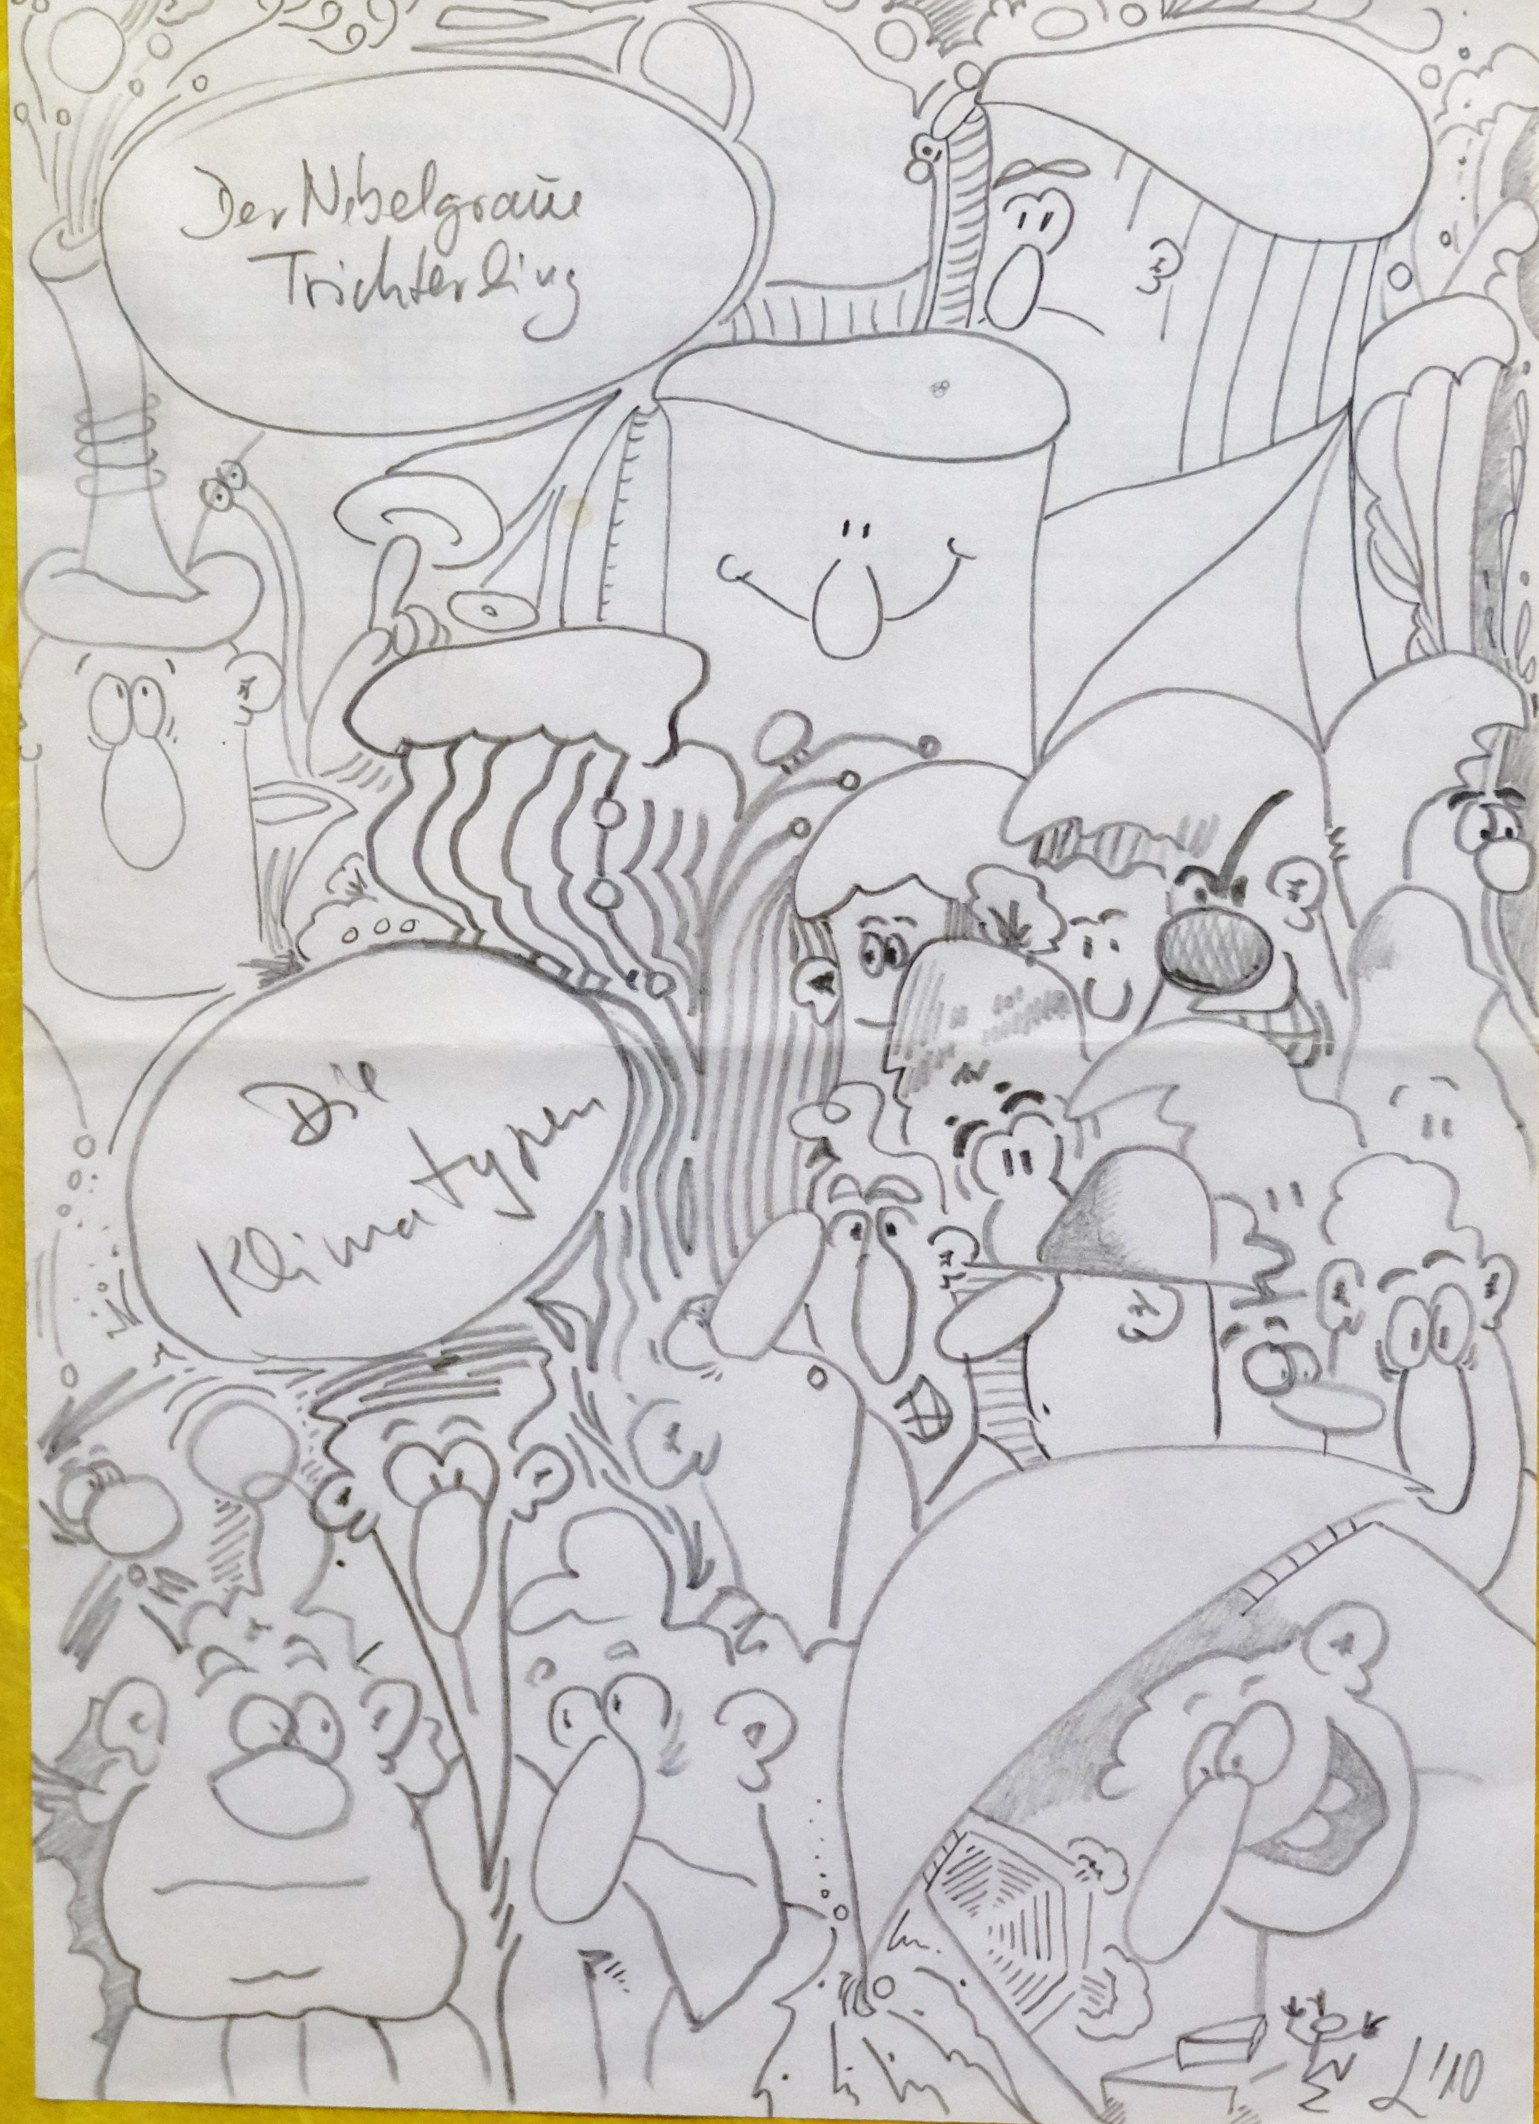 Der Nebelgraue
Trichterling
Die
Klimatypen
L'10